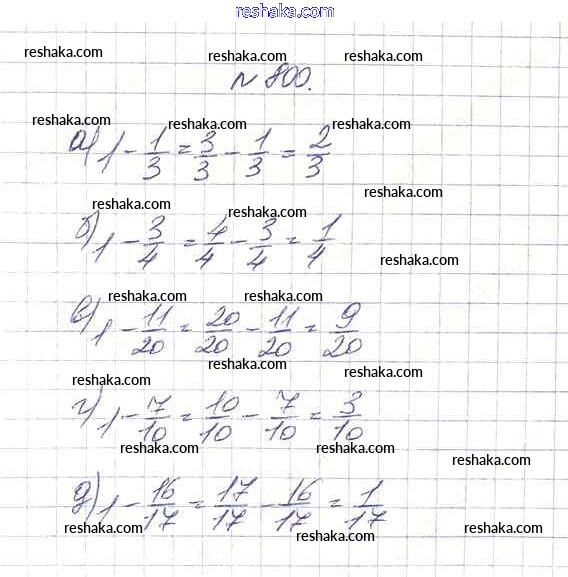 reshaka.com
reshaka.com reshaka.com reshaka.com
№ 800.
reshaka.com reshaka.com reshaka.com
а) 1 - 1/3 = 3/3 - 1/3 = 2/3
reshaka.com
reshaka.com reshaka.com
б) 1 - 3/4 = 4/4 - 3/4 = 1/4
reshaka.com
reshaka.com reshaka.com
в) 1 - 11/20 = 20/20 - 11/20 = 9/20
reshaka.com reshaka.com reshaka.com
г) 1 - 7/10 = 10/10 - 7/10 = 3/10
reshaka.com reshaka.com reshaka.com
д) 1 - 16/17 = 17/17 - 16/17 = 1/17
reshaka.com reshaka.com reshaka.com